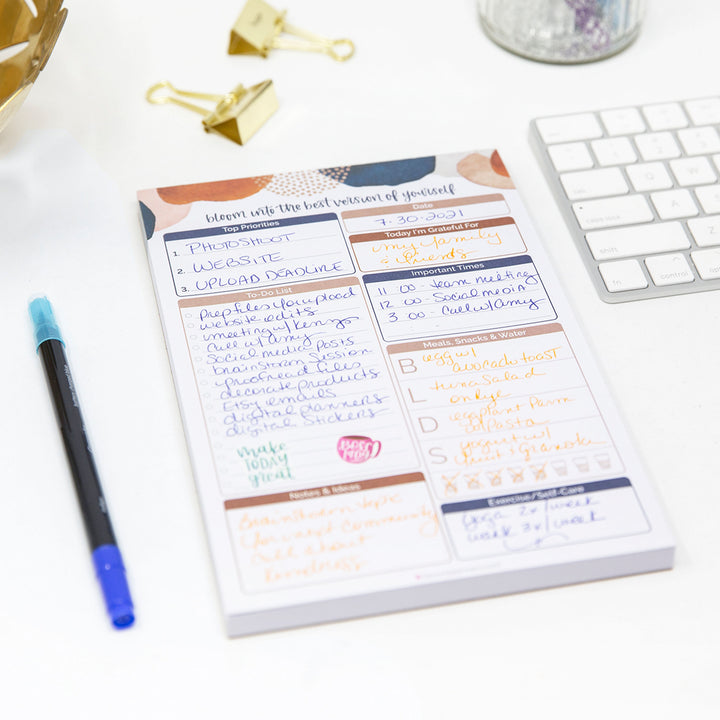 bloom into the best version of yourself
Top Priorities
1. PHOTOSHOOT
2. WEBSITE
3. UPLOAD DEADLINE
To-Do List
Prep files for upload
website edits
meeting w/
call w/ amy
social media posts
brainstorm session
proofread files
decorate products
Etsy emails
digital planners
digital stickers
make
TODAY
great
Notes & Ideas
Brainstorm topic
for next community
call about
kindness
Date
7-30-2021
Today I'm Grateful For
my family
& friends
Important Times
11 00 - team meeting
12 00 - Social media
3 00 - Call w/ amy
Meals, Snacks & Water
B egg w/
avocado toast
L tuna salad
on rye
D eggplant Parm
w/ Pasta
S yogurt w/
fruit & granola
Exercise/Self-Care
yoga 2x/week
3x/week
caps lock
shift
fn
control
option
Q
W
A
S
Z
1
2